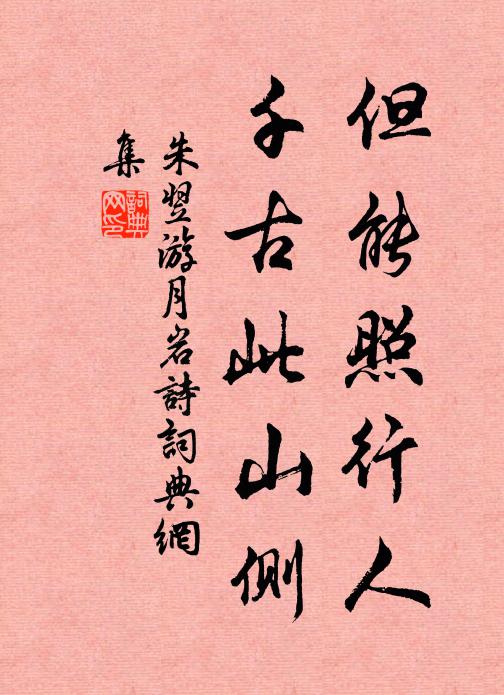 但能照行人
千古此山側
朱翌游月岩詩詞典網
集
詞典網印